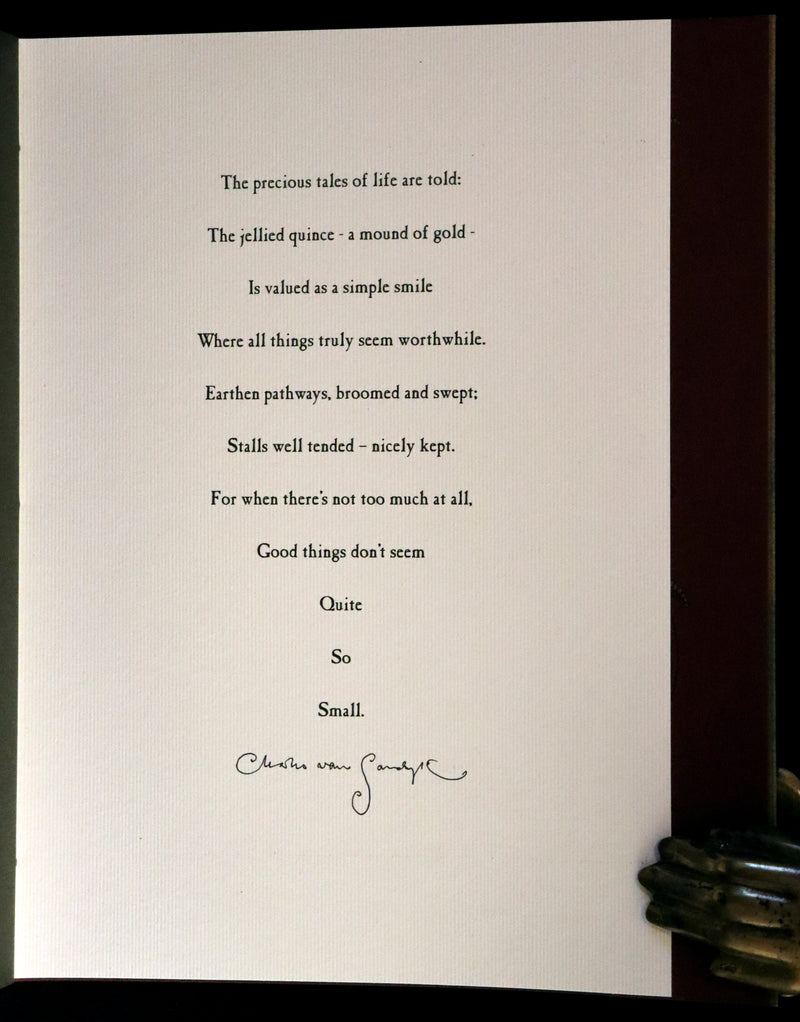 The precious tales of life are told:
The jellied quince - a mound of gold -
Is valued as a simple smile
Where all things truly seem worthwhile.
Earthen pathways, broomed and swept;
Stalls well tended – nicely kept.
For when there's not too much at all,
Good things don't seem
Quite
So
Small.
Charles van Sandwyk